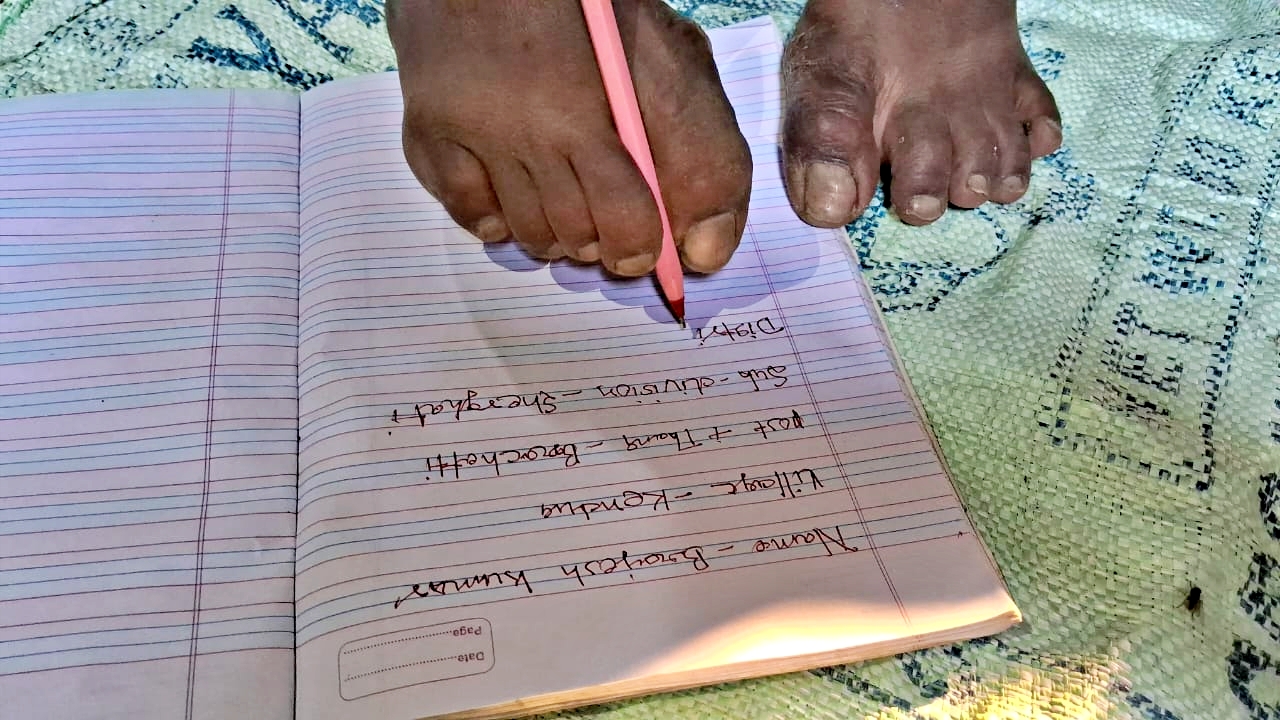 Date
Page
Name - Brajesh kumar
Village - Kendua
post + Thana - Barachatti
Sub - division - Sherghati
Distri